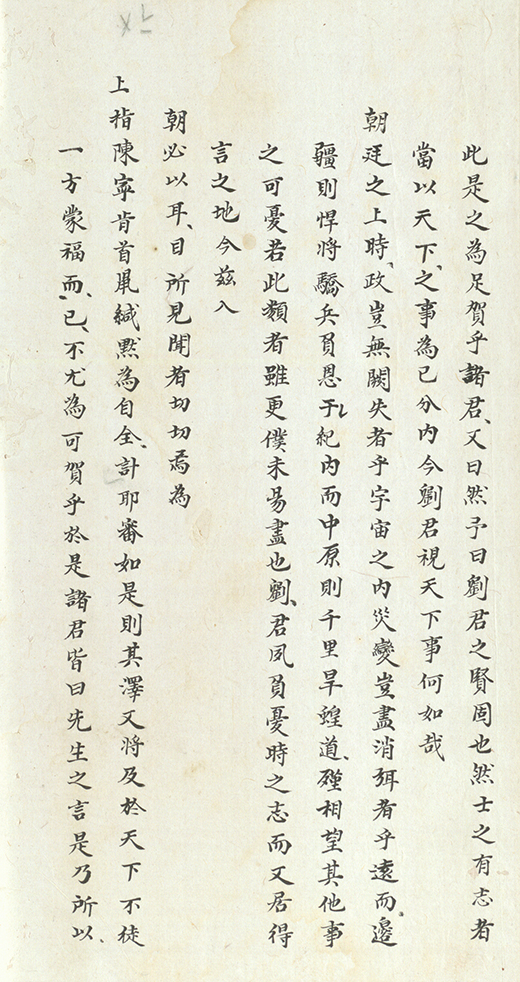 此是之為足賀乎諸君又曰然予曰劉君之賢固也然士之有志者
當以天下之事為已分内今劉君視天下事何如哉
朝廷之上時政豈無闕失者乎宇宙之内災變豈盡消弭者乎遠而邊
疆則悍將驕兵負恩于紀内而中原則千里旱蝗道殣相望其他事
之可憂若此類者雖更僕未易盡也劉君夙負憂時之志而又居得
言之地今兹入
朝必以耳目所見聞者切切焉為
上指陳寧肯首鼠緘黙為自全計耶審如是則其澤又將及於天下不徒
一方蒙福而已不尤為可賀乎於是諸君皆曰先生之言是乃所以